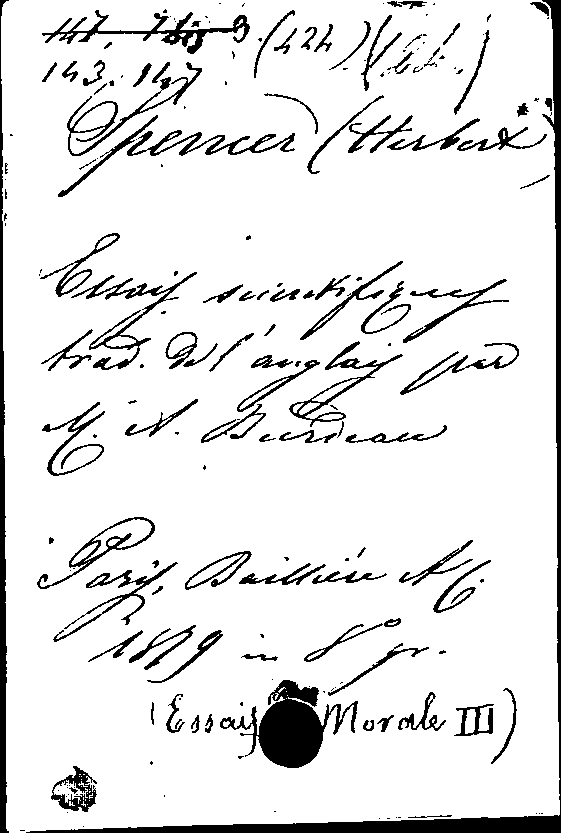 147, 7 bis 3. (424)
143. 147
Spencer (Herbert)
Essais scientifiques
trad. de l'anglais par
M. A. Burdeau
Paris, Baillière &C.
1879 in 8° gr.
(Essais Morale III)